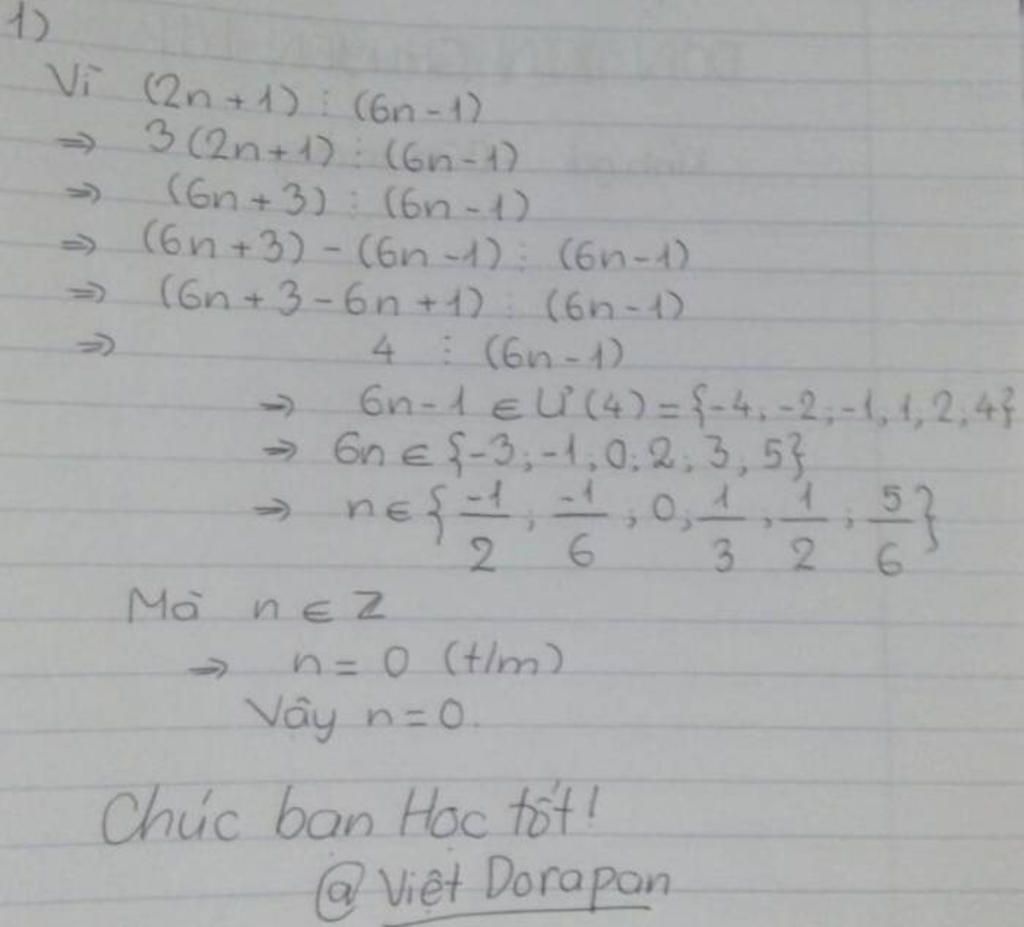 1)
Vì (2n+1) ⋮ (6n-1)
⇒ 3(2n+1) ⋮ (6n-1)
⇒ (6n+3) ⋮ (6n-1)
⇒ (6n+3) - (6n-1) ⋮ (6n-1)
⇒ (6n+3-6n+1) ⋮ (6n-1)
⇒ 4 ⋮ (6n-1)
⇒ 6n-1 ∈ Ư(4) = {-4; -2; -1; 1; 2; 4}
⇒ 6n ∈ {-3; -1; 0; 2; 3; 5}
⇒ n ∈ {-1/2; -1/6; 0; 1/3; 1/2; 5/6}
Mà n ∈ Z
⇒ n = 0 (t/m)
Vậy n = 0.
Chúc bạn Học tốt!
@ Việt Dorapan